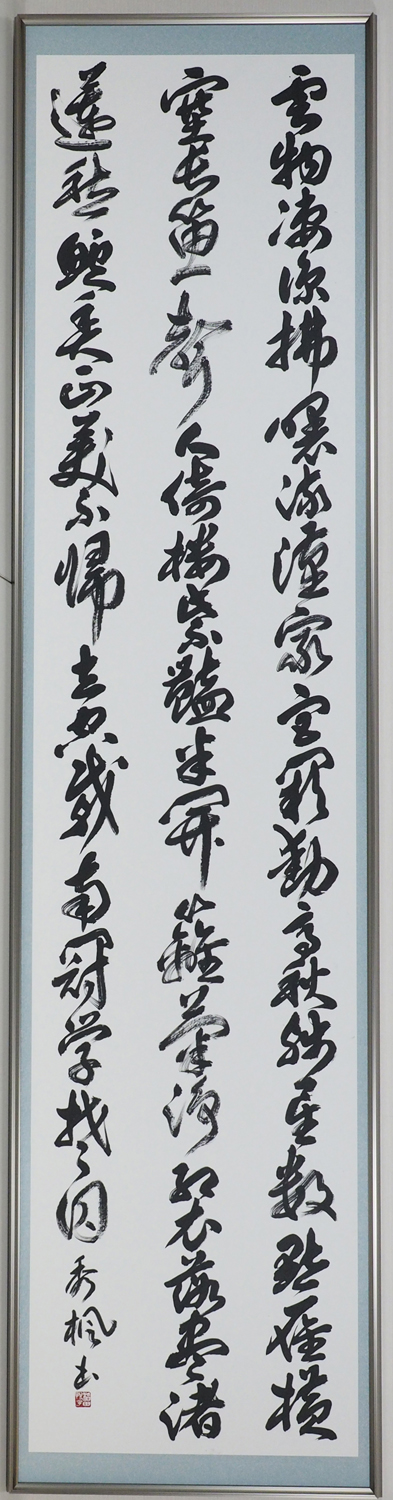 雲物凄涼拂曙流漢家宮闕動高秋残星数點雁横
塞長笛一聲人倚楼紫豔半開籬菊浄紅衣落尽渚
蓮愁鱸魚正美不帰去空戴南冠学楚囚 秀楓書